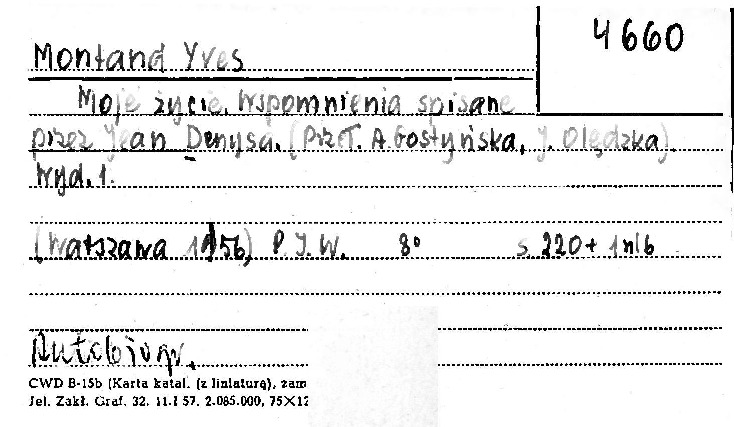 4660
Montand Yves
Moje życie. Wspomnienia spisane
przez Jean Denysa. (Przeł. A. Gostyńska, J. Olędzka).
Wyd. 1.
(Warszawa 1956) P. I. W. 8° s. 220 + 1 nlb
Autobiogr.
CWD B-15b (Karta katal. (z liniaturą), zam
Jel. Zakł. Graf. 32. 11.I 57. 2.085.000, 75×12